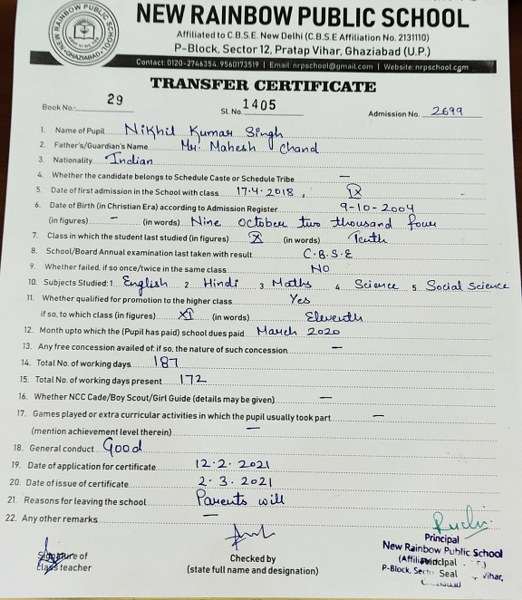 NEW RAINBOW PUBLIC SCHOOL
NEW RAINBOW PUBLIC SCHOOL
GHAZIABAD
Affiliated to C.B.S.E. New Delhi (C.B.S.E Affiliation No. 2131110)
P-Block, Sector 12, Pratap Vihar, Ghaziabad (U.P.)
Contact: 0120-2746354, 9560173519 | Email: nrpschool@gmail.com | Website: nrpschool.com
TRANSFER CERTIFICATE
Book No.: 29 Sl. No. 1405 Admission No. 2699
1. Name of Pupil Nikhil Kumar Singh
2. Father's/Guardian's Name Mr. Mahesh Chand
3. Nationality Indian
4. Whether the candidate belongs to Schedule Caste or Schedule Tribe —
5. Date of first admission in the School with class 17.4.2018, IX
6. Date of Birth (in Christian Era) according to Admission Register 9-10-2004
(in figures) - (in words) Nine October two thousand four
7. Class in which the student last studied (in figures) X (in words) Tenth
8. School/Board Annual examination last taken with result C.B.S.E
9. Whether failed, if so once/twice in the same class NO
10. Subjects Studied: 1. English 2. Hindi 3. Maths 4. Science 5. Social Science
11. Whether qualified for promotion to the higher class Yes
if so, to which class (in figures) XI (in words) Eleventh
12. Month upto which the (Pupil has paid) school dues paid March 2020
13. Any free concession availed of; if so, the nature of such concession —
14. Total No. of working days 187
15. Total No. of working days present 172
16. Whether NCC Cade/Boy Scout/Girl Guide (details may be given) —
17. Games played or extra curricular activities in which the pupil usually took part —
(mention achievement level therein) —
18. General conduct Good
19. Date of application for certificate 12.2.2021
20. Date of issue of certificate 2.3.2021
21. Reasons for leaving the school Parents will
22. Any other remarks —
Signature of
class teacher
Checked by
(state full name and designation)
Principal
New Rainbow Public School
Principal
P-Block, Vihar,
Seal